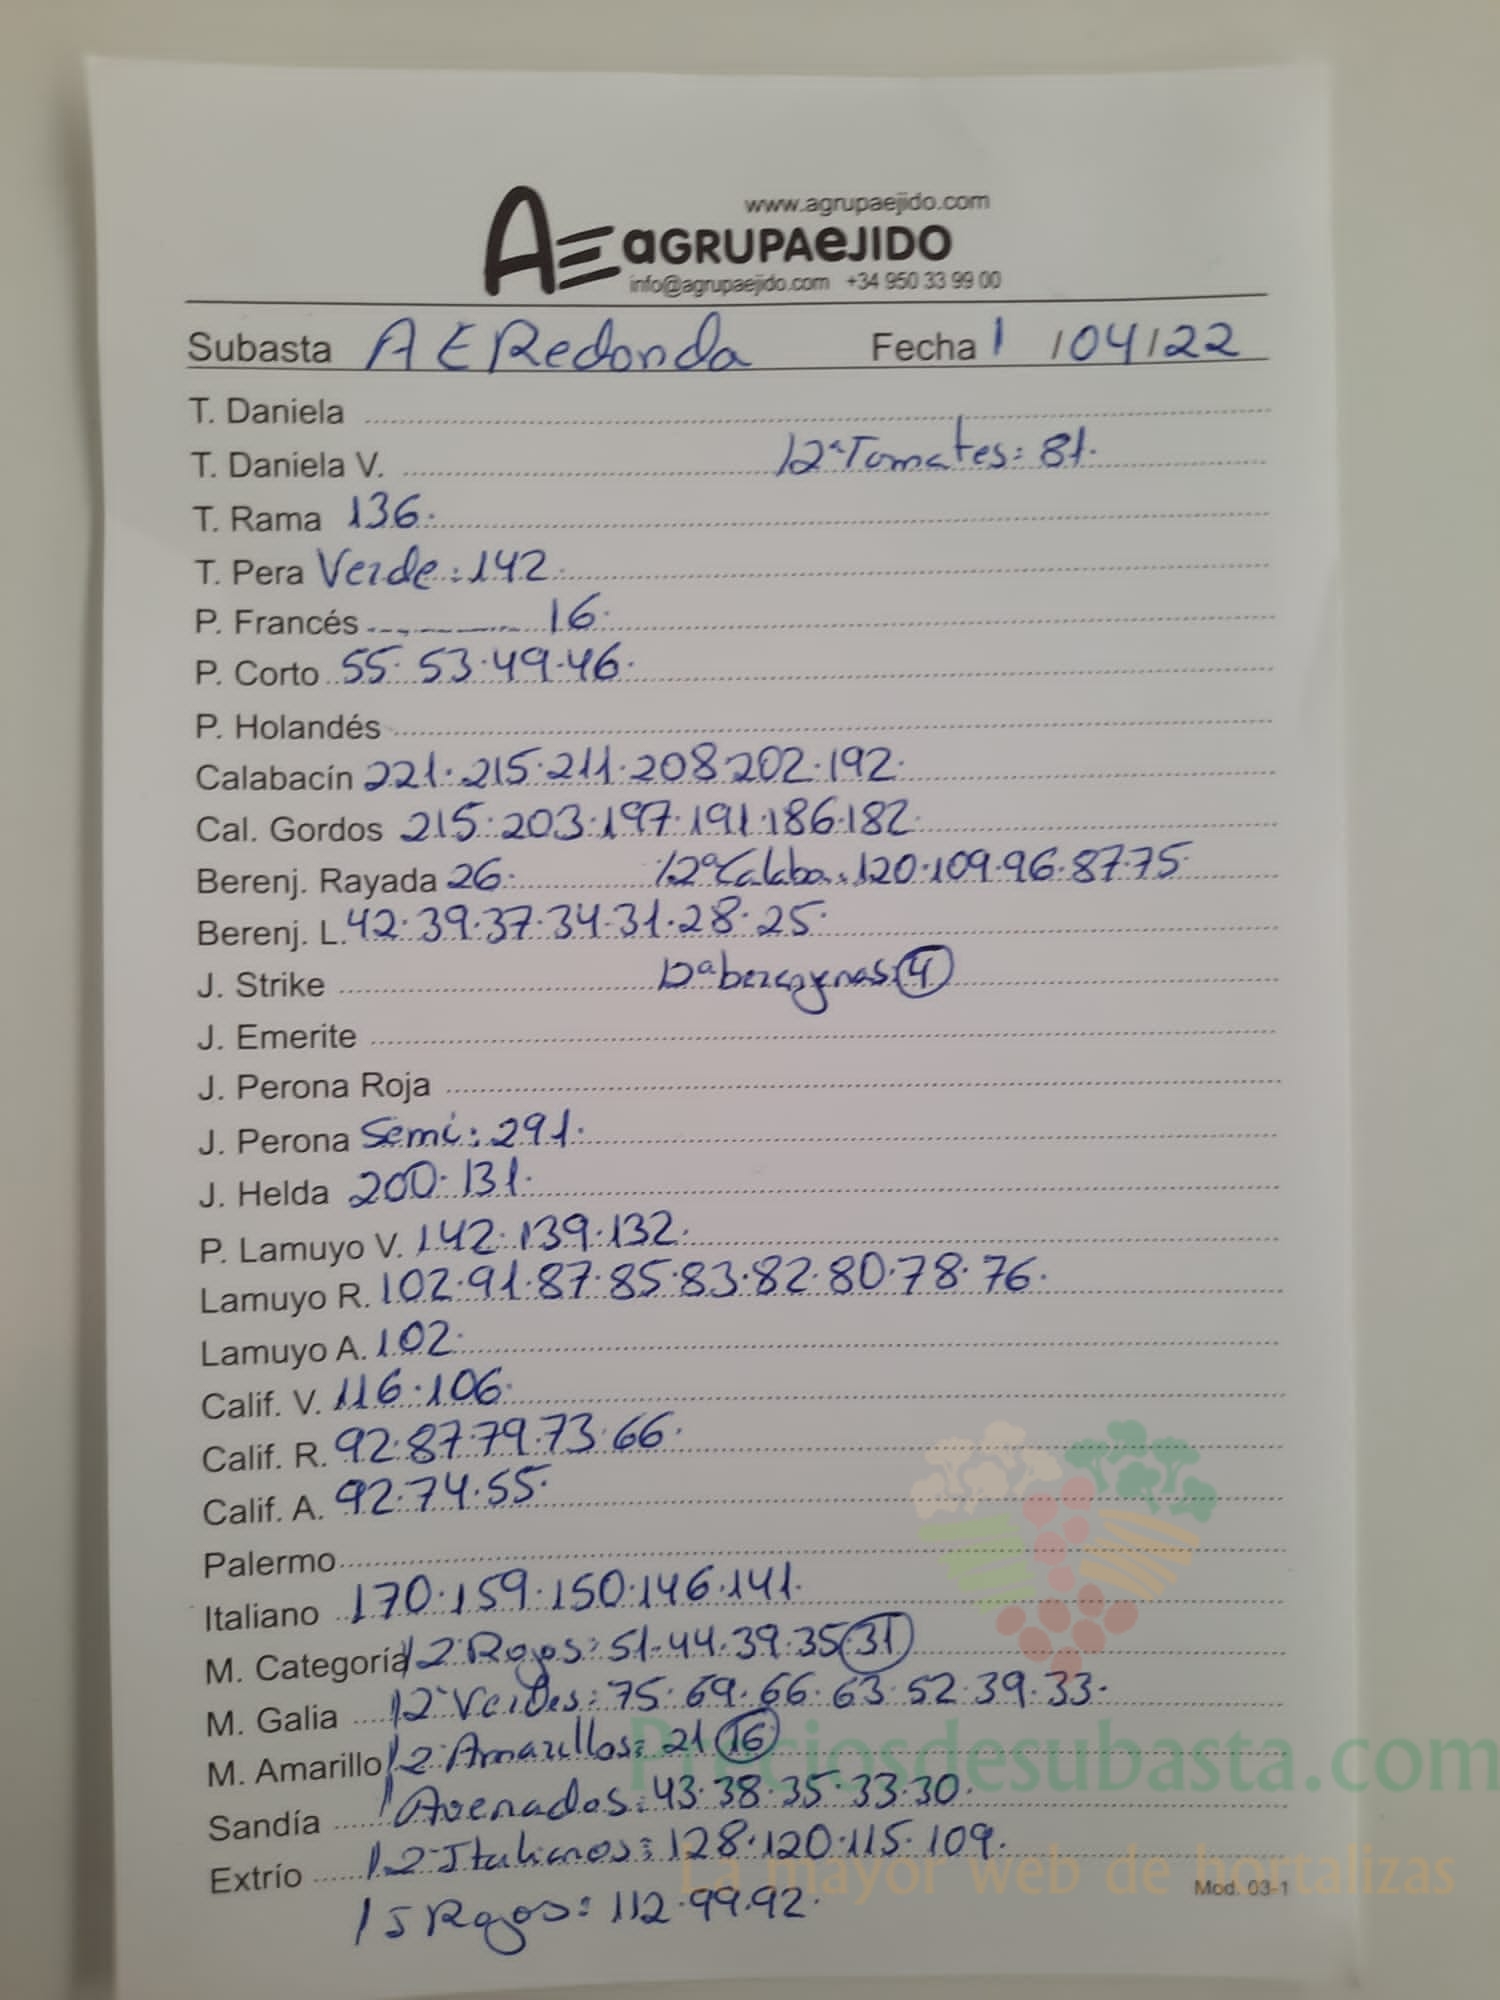 www.agrupaejido.com
AE aGRUPAeJIDO
info@agrupaejido.com +34 950 33 99 00
Subasta AE Redonda Fecha 1 /04/22
T. Daniela
T. Daniela V. /2ª Tomates: 81.
T. Rama 136.
T. Pera Verde: 142.
P. Francés 16.
P. Corto 55. 53. 49. 46.
P. Holandés
Calabacín 221. 215. 211. 208. 202. 192.
Cal. Gordos 215. 203. 197. 191. 186. 182.
Berenj. Rayada 26. /2ª Calaba.: 120. 109. 96. 87. 75.
Berenj. L. 42. 39. 37. 34. 31. 28. 25.
J. Strike /2ª berengenas: 4
J. Emerite
J. Perona Roja
J. Perona Semi: 291.
J. Helda 200. 131.
P. Lamuyo V. 142. 139. 132.
Lamuyo R. 102. 91. 87. 85. 83. 82. 80. 78. 76.
Lamuyo A. 102.
Calif. V. 116. 106.
Calif. R. 92. 87. 79. 73. 66.
Calif. A. 92. 74. 55.
Palermo
Italiano 170. 159. 150. 146. 141.
M. Categoría /2ª Rojos: 51. 44. 39. 35. 31
M. Galia /2ª Verdes: 75. 69. 66. 63. 52. 39. 33.
M. Amarillo /2ª Amarillos: 21 16
Sandía / Asenados: 43. 38. 35. 33. 30.
Extrío /2ª Italianos: 128. 120. 115. 109.
/ J Rojos: 112. 99. 92.
Mod. 03-1
Preciosdesubasta.com
La mayor web de hortalizas